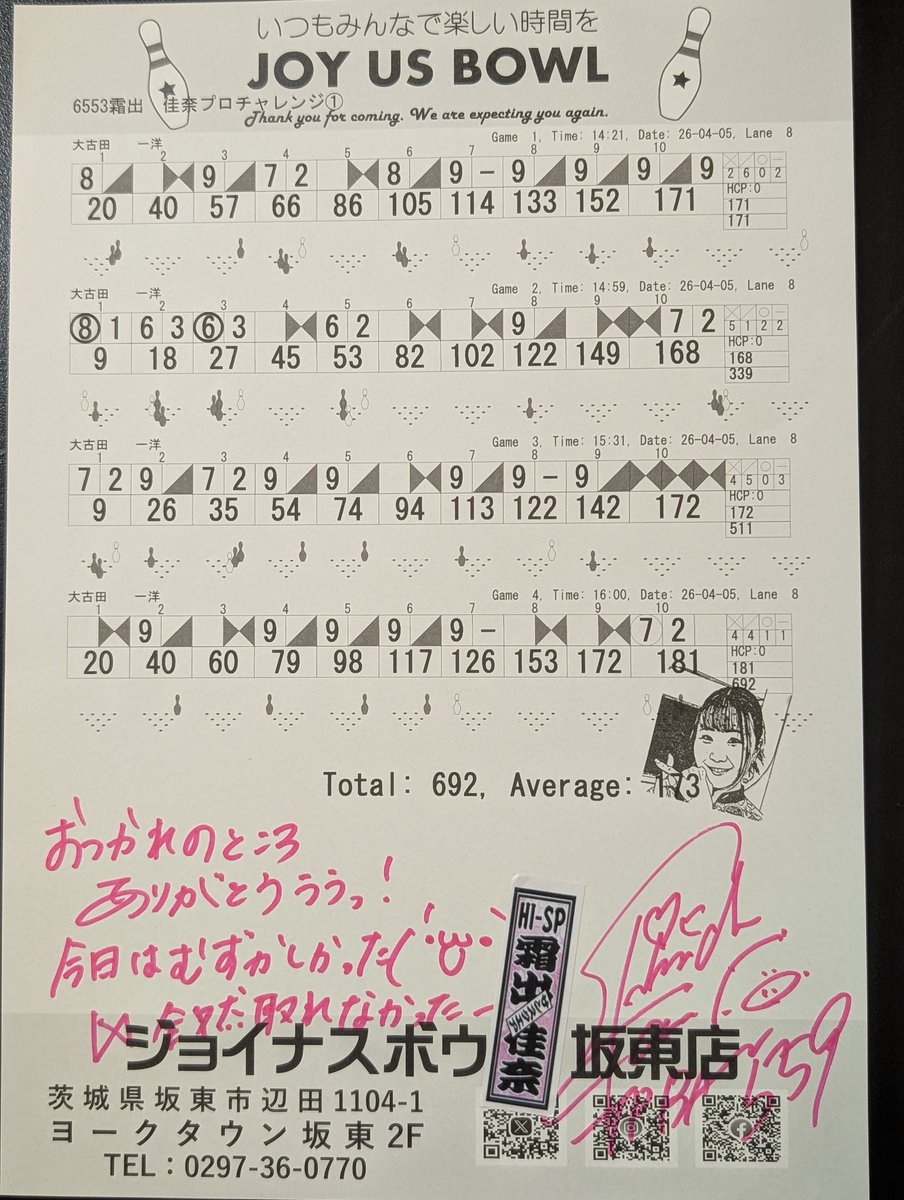 いつもみんなで楽しい時間を
JOY US BOWL
6553霜出 佳奈プロチャレンジ①
Thank you for coming. We are expecting you again.
大古田 一洋 Game 1, Time: 14:21, Date: 26-04-05, Lane 8
1 2 3 4 5 6 7 8 9 10
8 9 7 2 8 9 - 9 9 9 9 2 6 0 2
HCP:0
20 40 57 66 86 105 114 133 152 171 171
171
大古田 一洋 Game 2, Time: 14:59, Date: 26-04-05, Lane 8
1 2 3 4 5 6 7 8 9 10
⑧ 1 6 3 ⑥ 3 6 2 9 7 2 5 1 2 2
HCP:0
9 18 27 45 53 82 102 122 149 168 168
339
大古田 一洋 Game 3, Time: 15:31, Date: 26-04-05, Lane 8
1 2 3 4 5 6 7 8 9 10
7 2 9 7 2 9 9 9 9 - 9 4 5 0 3
HCP:0
9 26 35 54 74 94 113 122 142 172 172
511
大古田 一洋 Game 4, Time: 16:00, Date: 26-04-05, Lane 8
1 2 3 4 5 6 7 8 9 10
9 9 9 9 9 - ⑦ 2 4 4 1 1
HCP:0
20 40 60 79 98 117 126 153 172 181 181
692
Total: 692, Average: 173
おつかれのところ
ありがとうううっ!
今日はむずかしかった
全然取れなかったー
HI-SP
霜出
佳奈
ジョイナスボウ 坂東店
茨城県坂東市辺田1104-1
ヨークタウン坂東2F
TEL:0297-36-0770